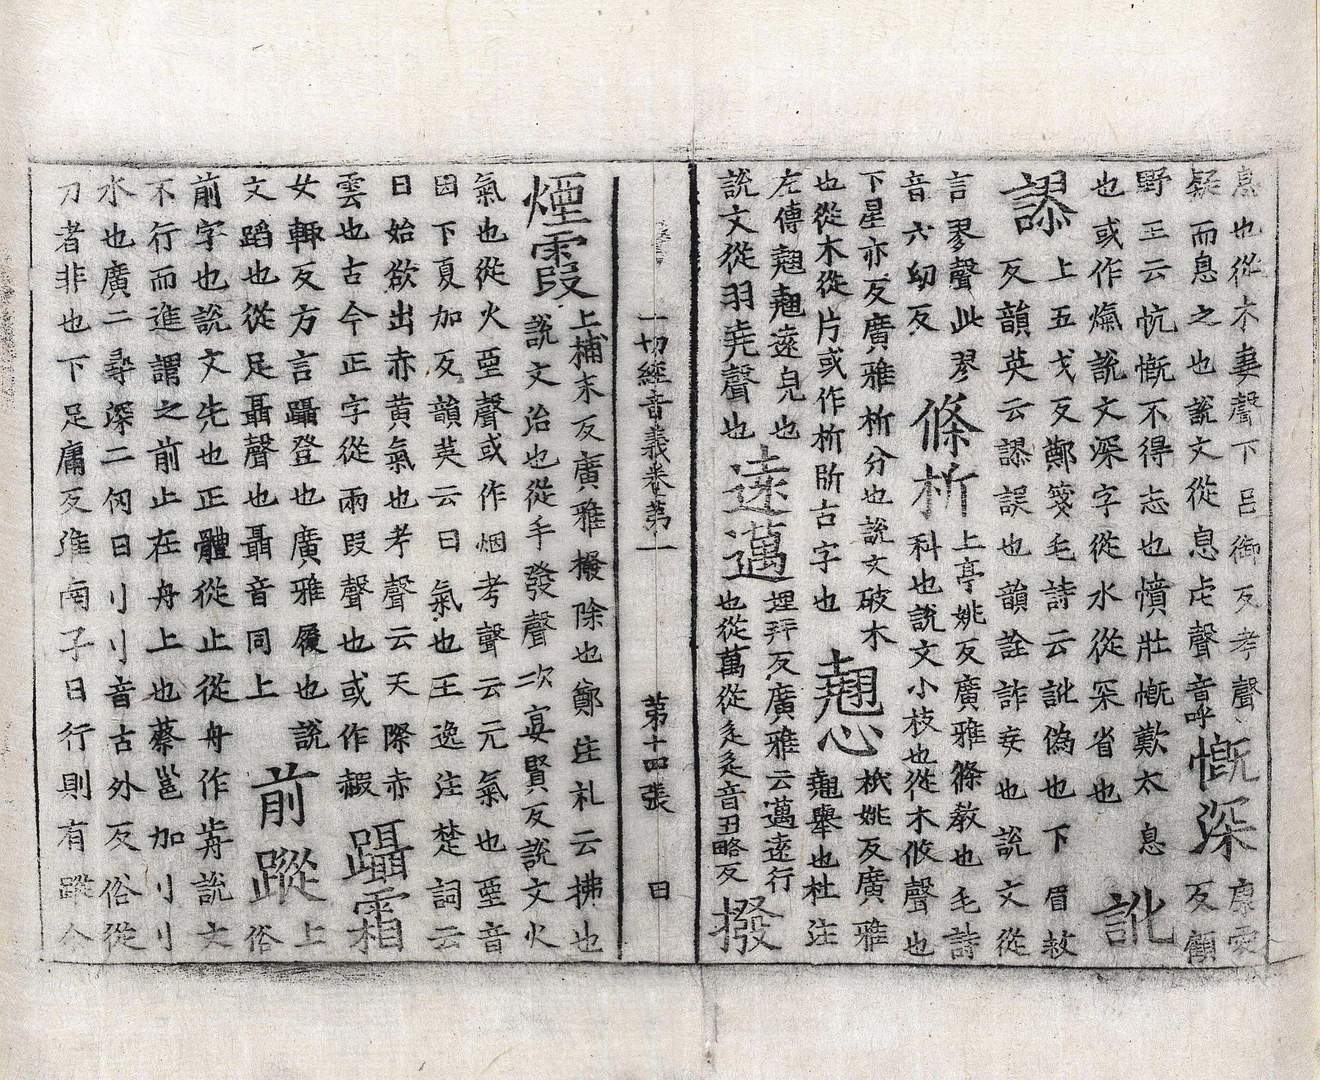 息也從木妻聲下呂御反考聲
疑而息之也說文從息虍聲音呼
慨深
康愛
反顧
野王云忼慨不得志也憤壯慨歎太息
也或作㵤說文深字從水從罙省也
訛
上五戈反鄭箋毛詩云訛偽也下眉救
謬
反韻英云謬誤也韻詮詐妄也說文從
言翏聲此翏
音六幼反
條析
上亭姚反廣雅條教也毛詩
科也說文小枝也從木攸聲也
下星亦反廣雅析分也說文破木
也從木從片或作㭊斦古字也
翹心
衹姚反廣雅
翹舉也杜注
左傳翹翹遠皃也
說文從羽堯聲也
遠邁
埋拜反廣雅云邁遠行
也從萬從辵辵音丑略反
撥
一切經音義卷第一 第十四張 曰
煙霞
上補末反廣雅撥除也鄭注礼云拂也
說文治也從手發聲次宴賢反說文火
氣也從火垔聲或作烟考聲云元氣也垔音
因下夏加反韻英云日氣也王逸注楚詞云
日始欲出赤黄氣也考聲云天際赤
雲也古今正字從雨叚聲也或作赮
躡霜
女輒反方言躡登也廣雅履也說
文蹈也從足聶聲也聶音同上
前蹤
上
俗
前字也說文先也正體從止從舟作歬說文
不行而進謂之前止在舟上也蔡邕加刂刂
水也廣二尋深二仞曰刂刂音古外反俗從
刀者非也下足庸反淮南子曰行則有蹤今